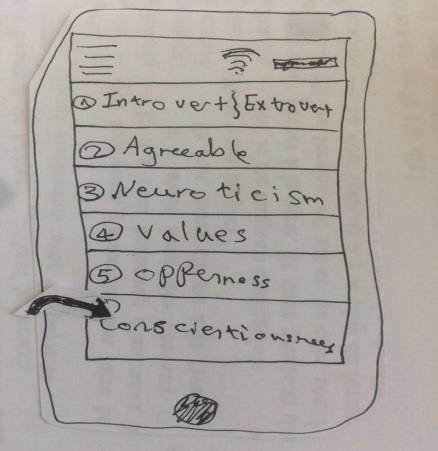 ① Introvert } Extrovert
② Agreeable
③ Neuroticism
④ Values
⑤ Oppenness
Conscientiousness